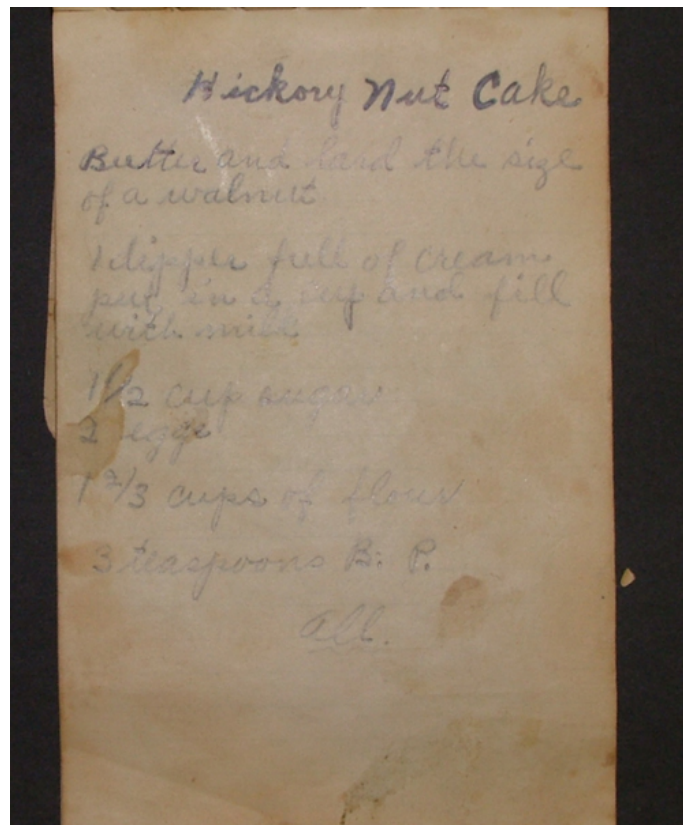 Hickory Nut Cake
Butter and lard the size
of a walnut
1 dipper full of cream
put in a cup and fill
with milk
1 1/2 cup sugar
2 eggs
1 2/3 cups of flour
3 teaspoons B. P.
All.